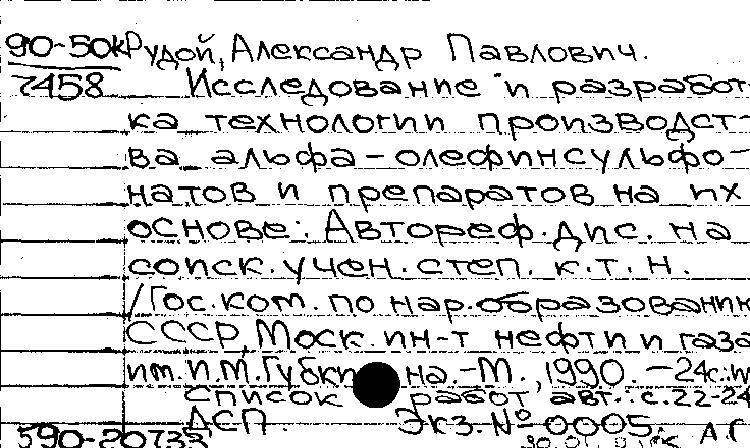 90-50к Рудой, Александр Павлович.
7458 Исследование и разработ-
ка технологии производст-
ва альфа-олефинсульфо-
натов и препаратов на их
основе: Автореф. дис. на
соиск. учен. степ. к. т. н.
/Гос. ком. по нар. образованию
СССР, Моск. ин-т нефти и газа
им. И.М. Губкина. - М., 1990. - 24с.: и
Список работ авт.: с. 22-24
ДСП. Экз. № 0005.
590-20733